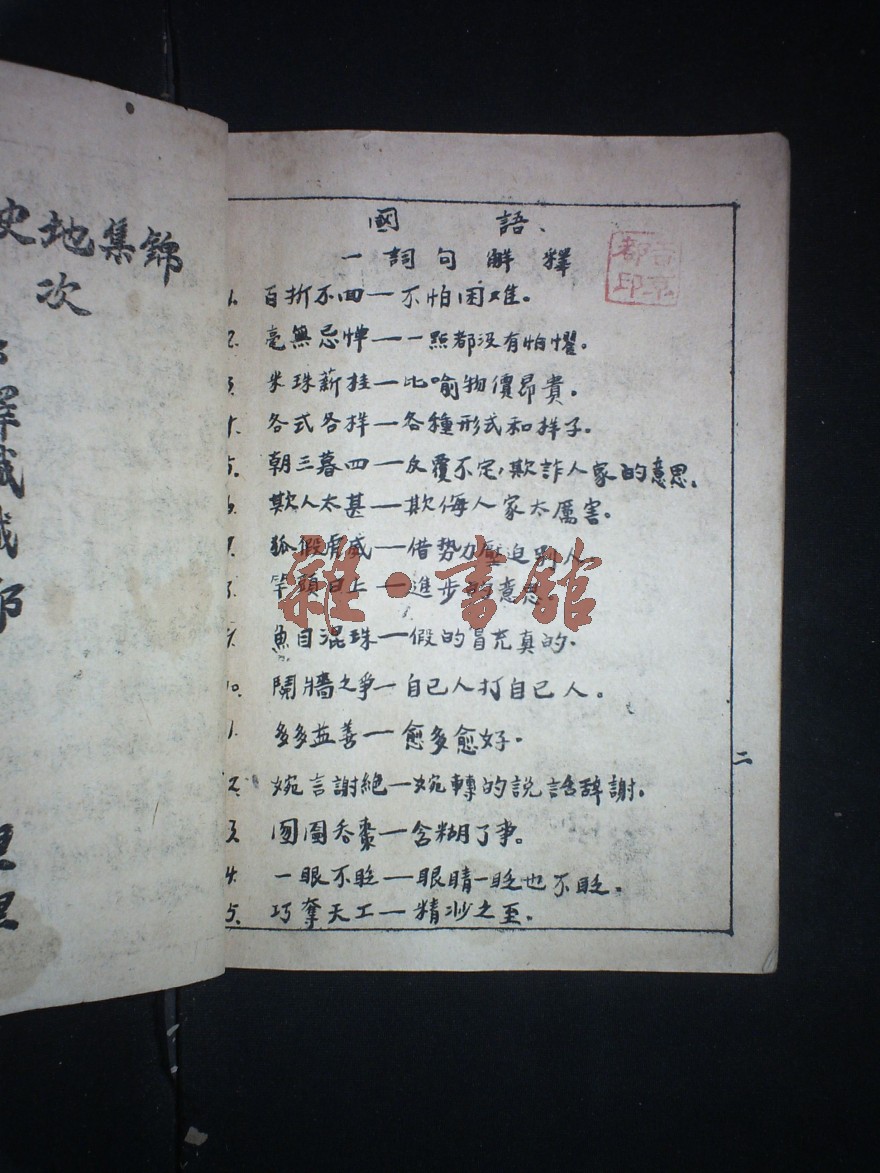 史地集錦
次
國 語、
一詞句解釋
1. 百折不回—不怕困难。
2. 毫無忌惮—一點都没有怕懼。
3. 米珠薪挂—比喻物價昂貴。
4. 各式各样—各種形式和样子。
5. 朝三暮四—反覆不定,欺詐人家的意思。
6. 欺人太甚—欺侮人家太厲害。
7. 狐假虎威—借势力壓迫别人
8. 竿頭日上—進步的意思
9. 魚目混珠—假的冒充真的.
10. 鬩牆之爭—自己人打自己人。
1. 多多益善—愈多愈好.
2. 婉言謝絶—婉轉的説話辞謝.
3. 囫圇吞棗—含糊了事。
4. 一眼不眨—眼睛一眨也不眨.
5. 巧奪天工—精沙之至.
二
雜·書館